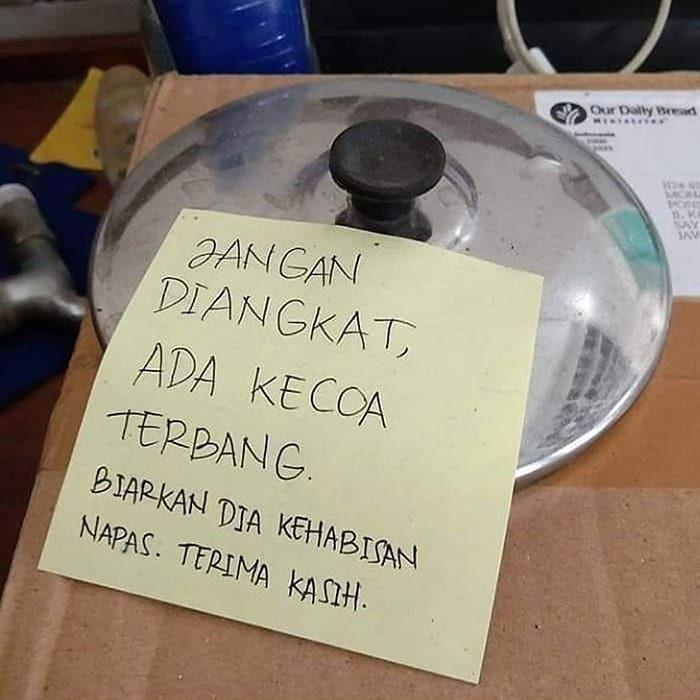 JANGAN
DIANGKAT,
ADA KECOA
TERBANG.
BIARKAN DIA KEHABISAN
NAPAS. TERIMA KASIH.
Our Daily Bread
Ministries
Indonesia